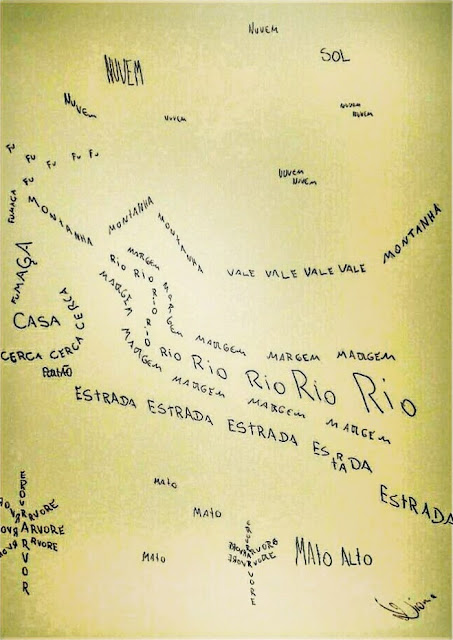 NUVEM
SOL
NUVEM
NUVEM
NUVEM
NUVEM
NUVEM
NUVEM
NUVEM
FU
FU
FU FU FU
FU
FUMAÇA
FUMAÇA
MONTANHA
MONTANHA
MONTANHA
VALE VALE VALE VALE
MONTANHA
MARGEM
MARGEM
RIO RIO RIO RIO
MARGEM
CERCA
CERCA
CASA
CERCA CERCA
PORTÃO
MARGEM MARGEM MARGEM
RIO RIO RIO RIO RIO
MARGEM MARGEM MARGEM MARGEM
ESTRADA ESTRADA ESTRADA ESTRADA
ESTRADA
MATO
MATO
MATO
MATO ALTO
ARVORE
ARVORE
ARVORE
ARVORE
ARVORE
ARVORE